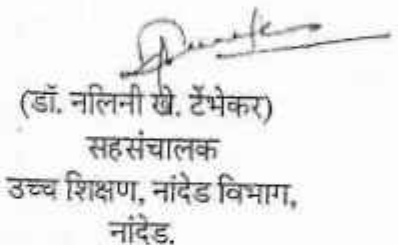 (डॉ. नलिनी खे. टेंभेकर)
सहसंचालक
उच्च शिक्षण, नांदेड विभाग,
नांदेड.